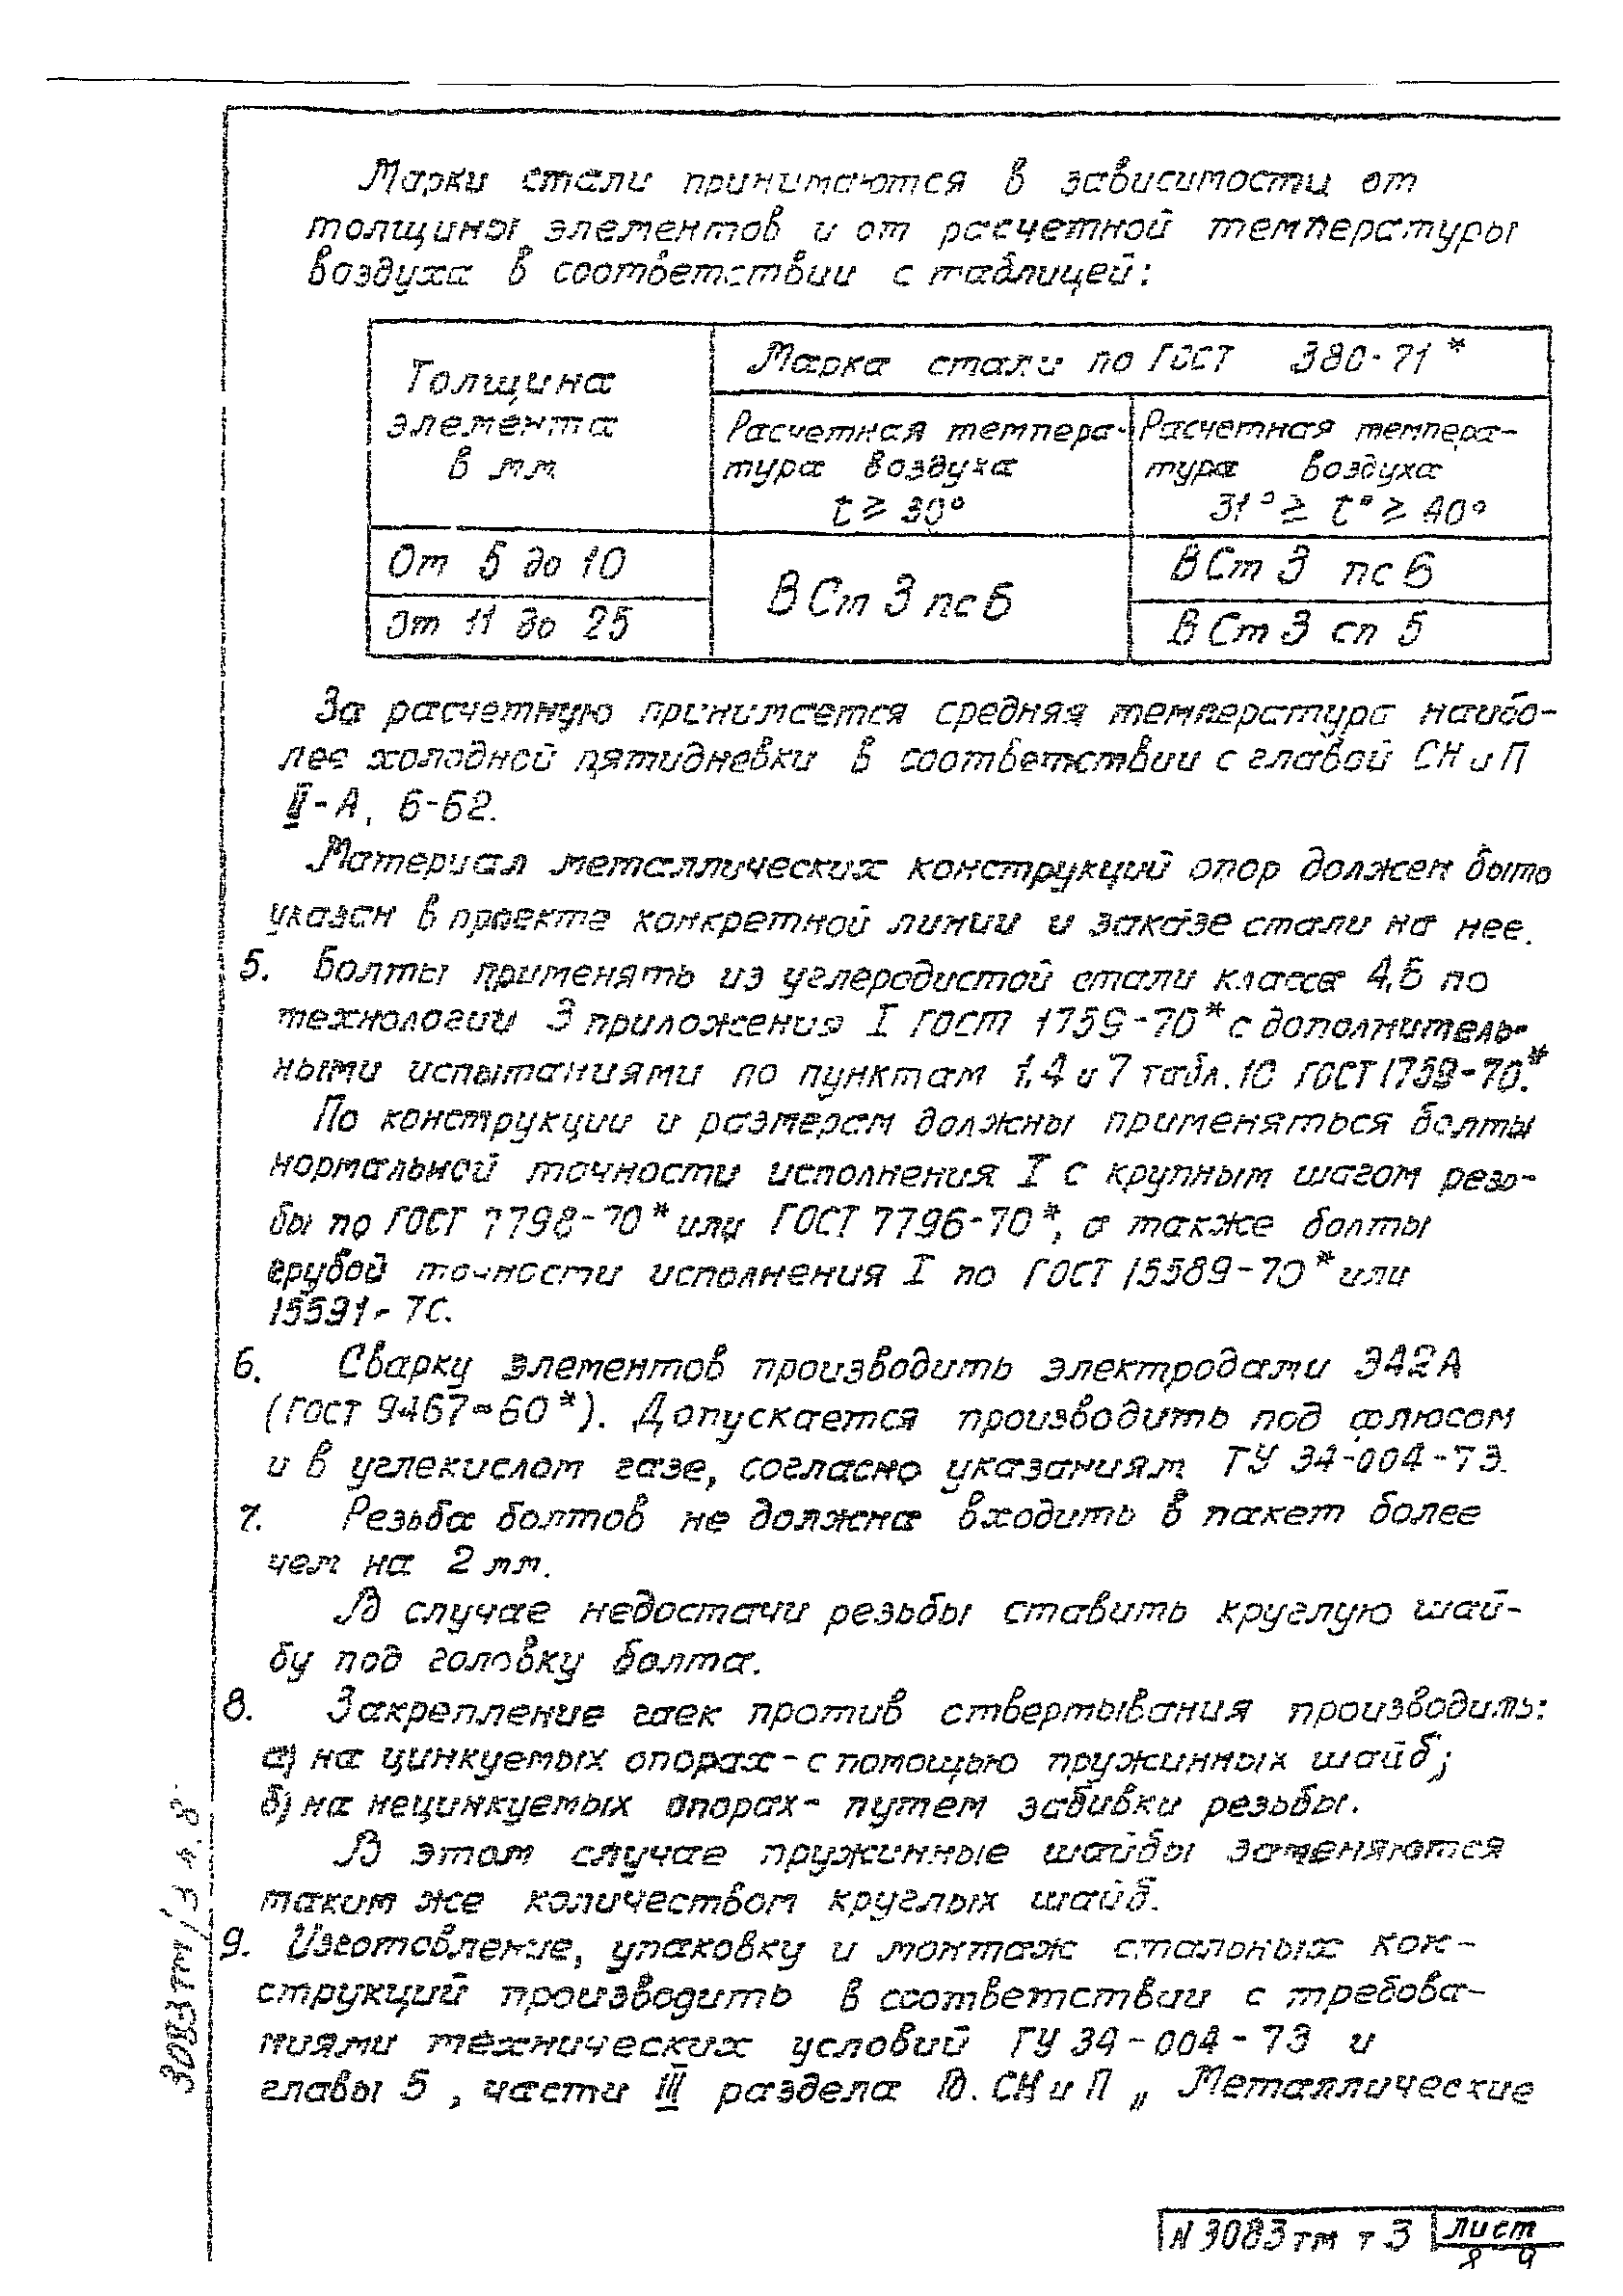 Марки стали принимаются в зависимости от
толщины элементов и от расчетной температуры
воздуха в соответствии с таблицей:
Толщина
элемента
в мм
Марка стали по ГОСТ 380-71*
Расчетная темпера-
тура воздуха
t ≥ 30°
Расчетная темпера-
тура воздуха
31° ≥ t° ≥ 40°
От 5 до 10
От 11 до 25
ВСт 3 пс 6
ВСт 3 пс 6
ВСт 3 сп 5
За расчетную принимается средняя температура наибо-
лее холодной пятидневки в соответствии с главой СН и П
II-А, 6-62.
Материал металлических конструкций опор должен быть
указан в проекте конкретной линии и заказе стали на нее.
5. Болты применять из углеродистой стали класса 4,6 по
технологии 3 приложения I ГОСТ 1759-70* с дополнитель-
ными испытаниями по пунктам 1,4 и 7 табл. 10 ГОСТ 1759-70.*
По конструкции и размерам должны применяться болты
нормальной точности исполнения I с крупным шагом резь-
бы по ГОСТ 7798-70* или ГОСТ 7796-70*, а также болты
грубой точности исполнения I по ГОСТ 15589-70* или
15591-70.
6. Сварку элементов производить электродами Э42А
(ГОСТ 9467-60*). Допускается производить под флюсом
и в углекислом газе, согласно указаниям ТУ 34-004-73.
7. Резьба болтов не должна входить в пакет более
чем на 2 мм.
В случае недостачи резьбы ставить круглую шай-
бу под головку болта.
8. Закрепление гаек против отвертывания производить:
а) на цинкуемых опорах - с помощью пружинных шайб;
б) на нецинкуемых опорах - путем забивки резьбы.
В этом случае пружинные шайбы заменяются
таким же количеством круглых шайб.
9. Изготовление, упаковку и монтаж стальных кон-
струкций производить в соответствии с требова-
ниями технических условий ТУ 34-004-73 и
главы 5, части III раздела В. СН и П „Металлические
3083тм
N 3083тм т 3 Лист
8 9